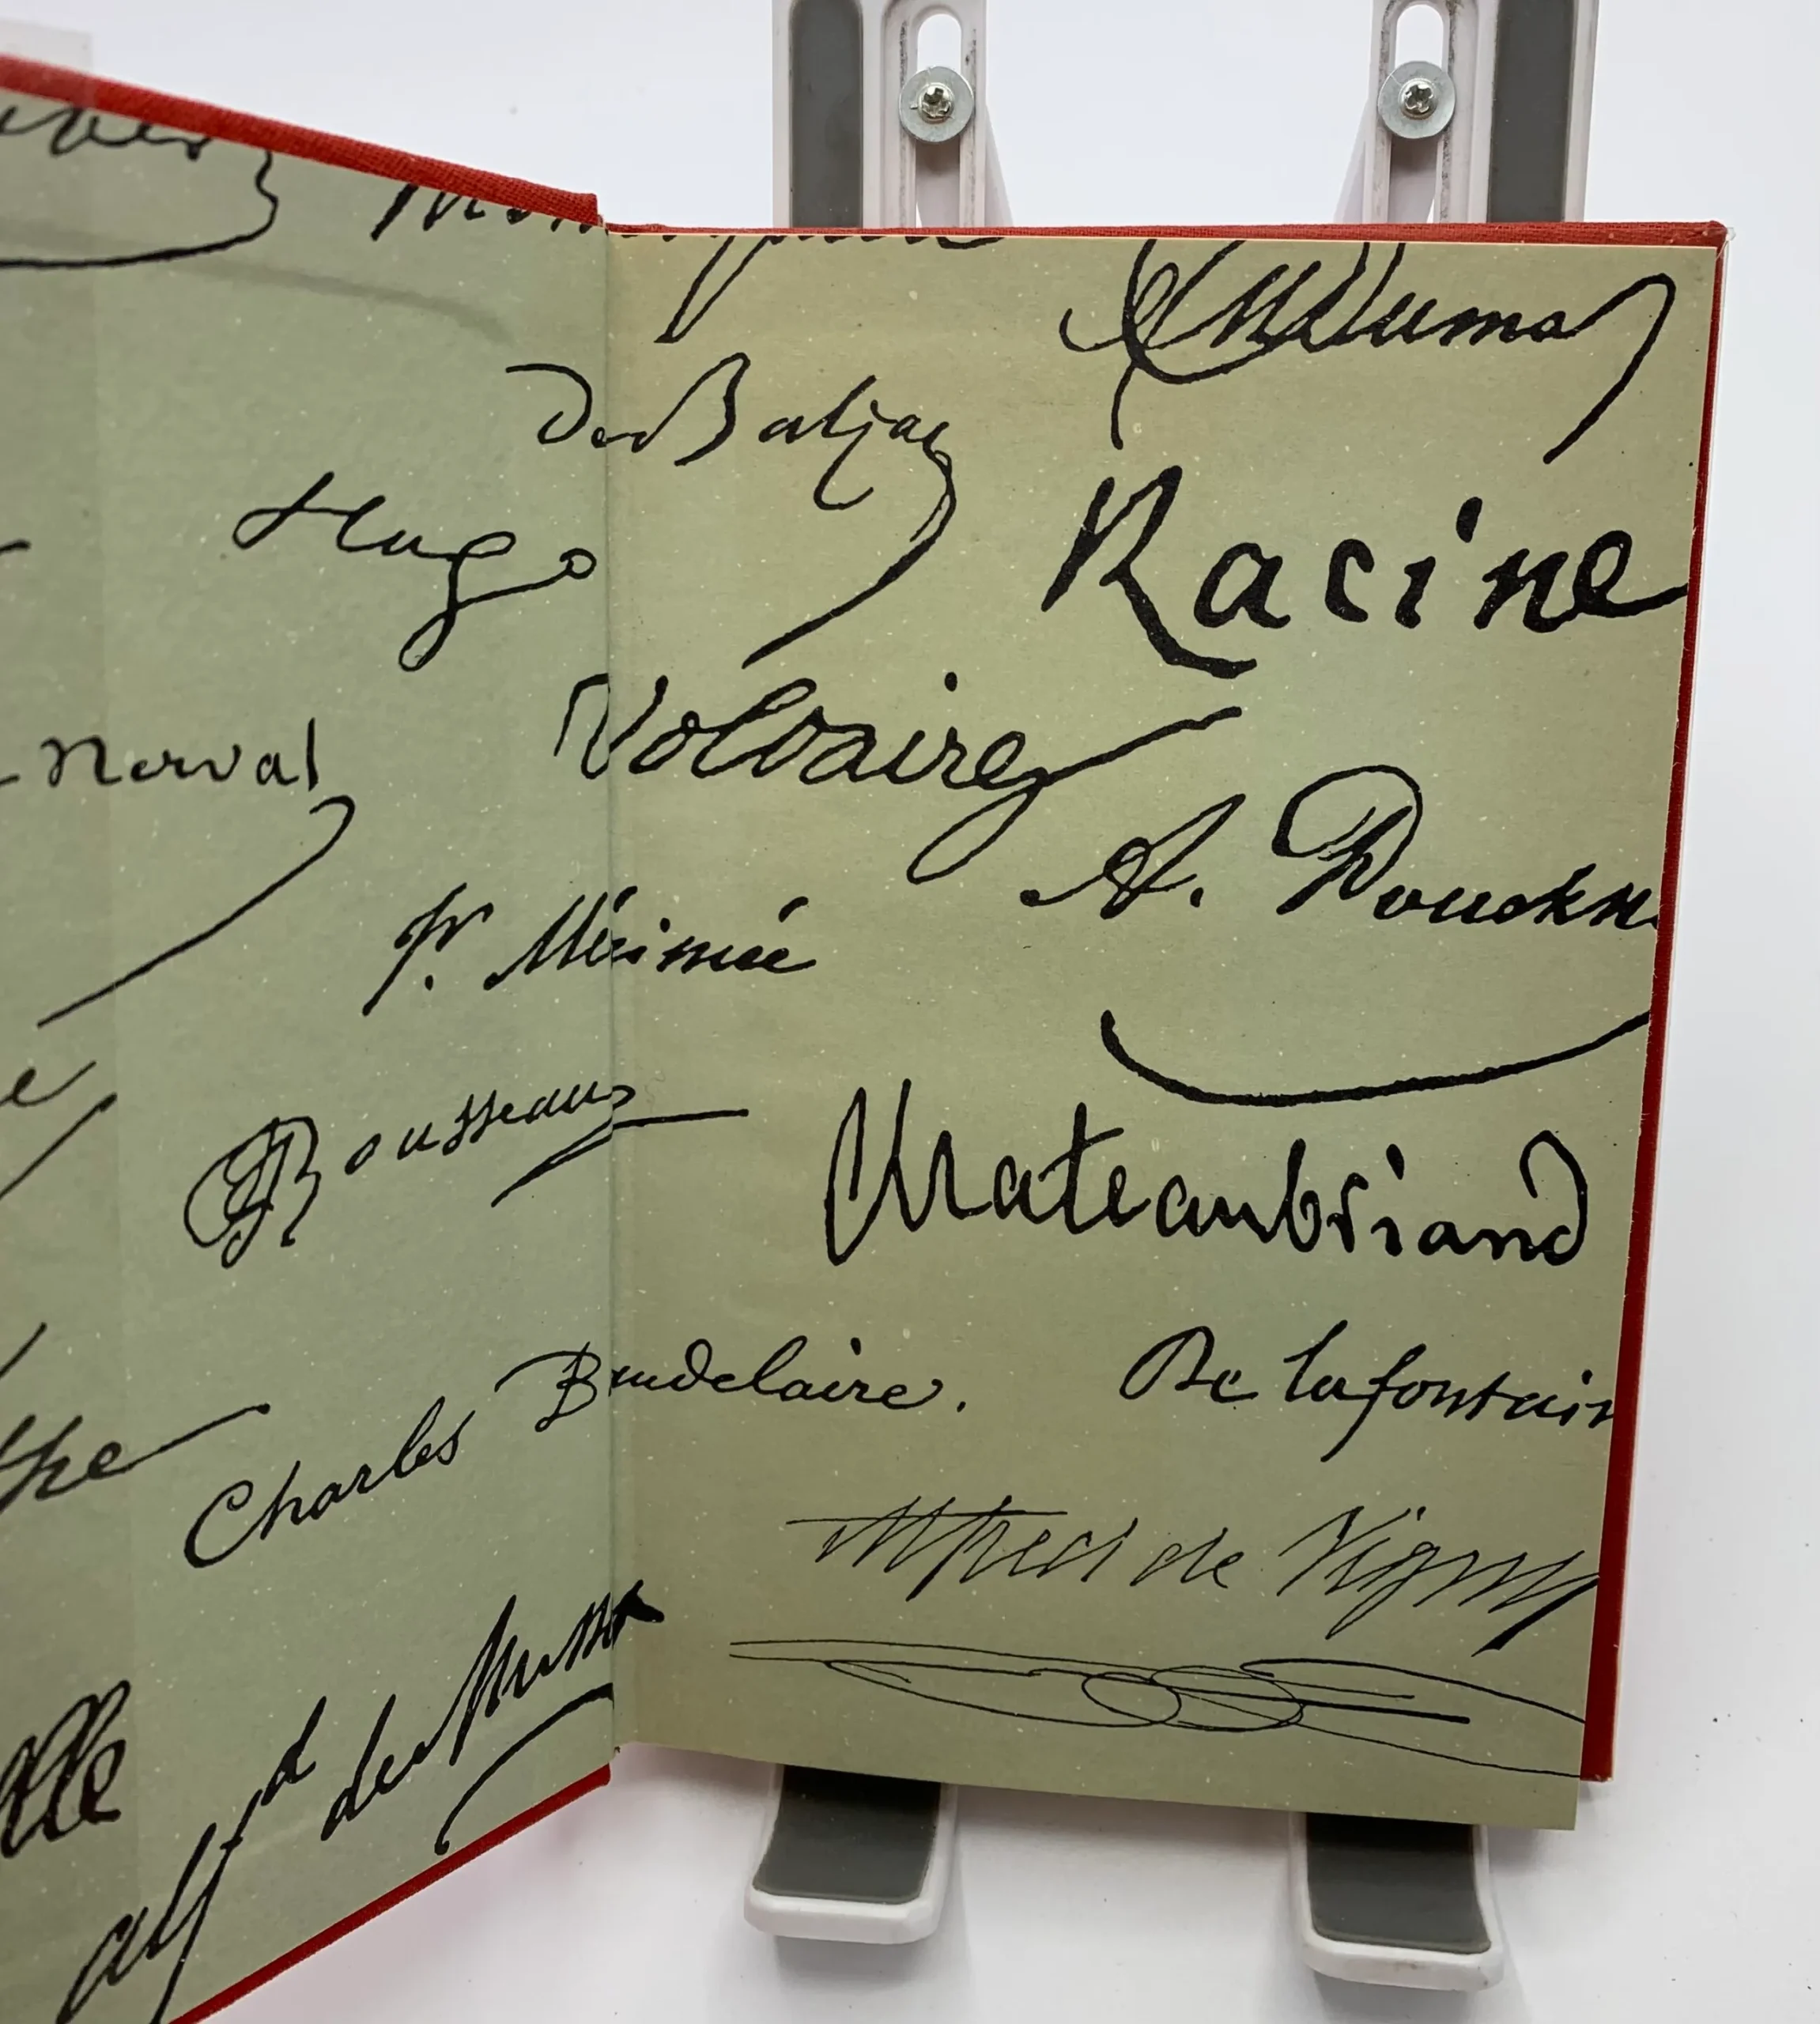 Dumas
De Balzac
Hugo
Racine
Voltaire
Nerval
A. Pouchk
Pr. Mérimée
Rousseau
Chateaubriand
Charles Baudelaire.
De la fontain
Alfred de Vigny
alf d de Musset